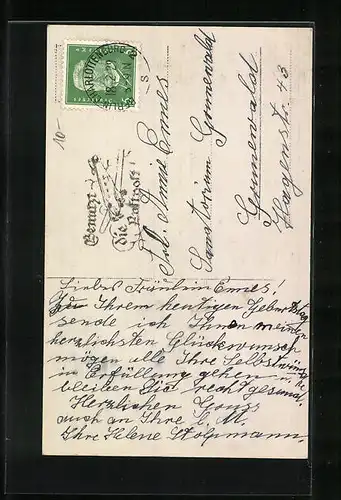 BERLIN-CHARLOTTENBURG
18.2.29
Benutzt
die
Luftpost
10-
Frl. Annie Ennes
Sanatorium Grunewald
Grunewald
Hagenstr. 43
Liebes Fräulein Ennes!
Zu Ihrem heutigen Geburtstag
sende ich Ihnen meinen
herzlichsten Glückwunsch
mögen alle Ihre
in Erfüllung gehen u.
bleiben Sie recht gesund.
Herzlichen Gruss
auch an Ihre l. M.
Ihre Helene